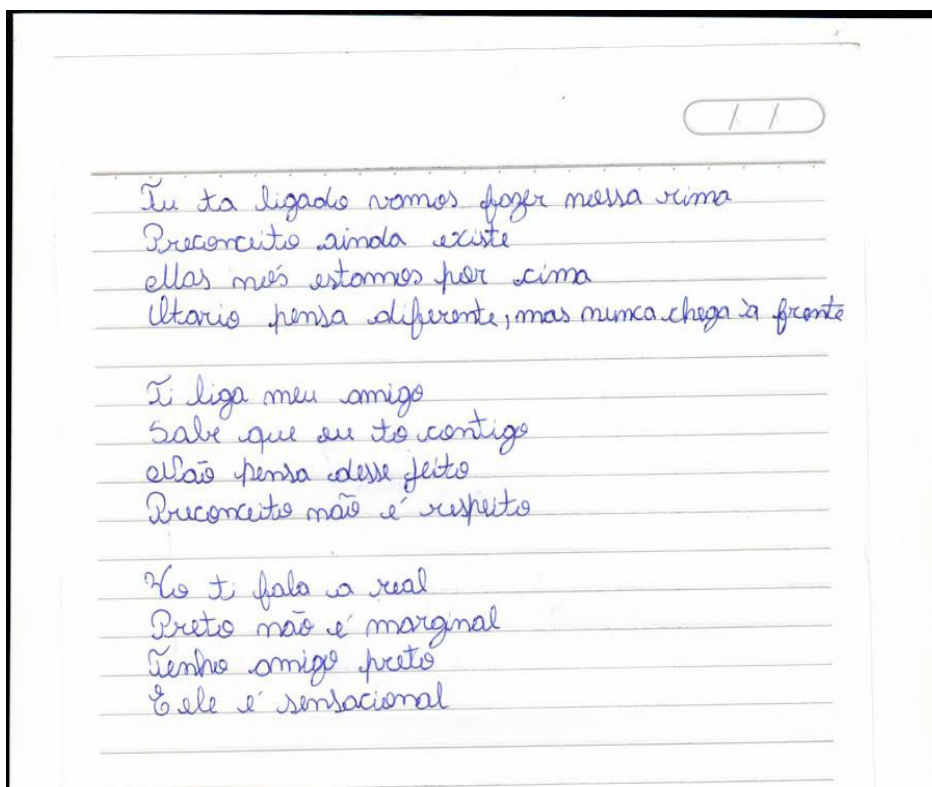 / /
Tu ta ligado vamos fazer nossa rima
Preconceito ainda existe
Mas nós estamos por cima
Otario pensa diferente, mas nunca chega à frente
Ti liga meu amigo
Sabe que eu to contigo
Não pensa desse jeito
Preconceito não é respeito
Vo ti fala a real
Preto não é marginal
Tenho amigo preto
E ele é sensacional